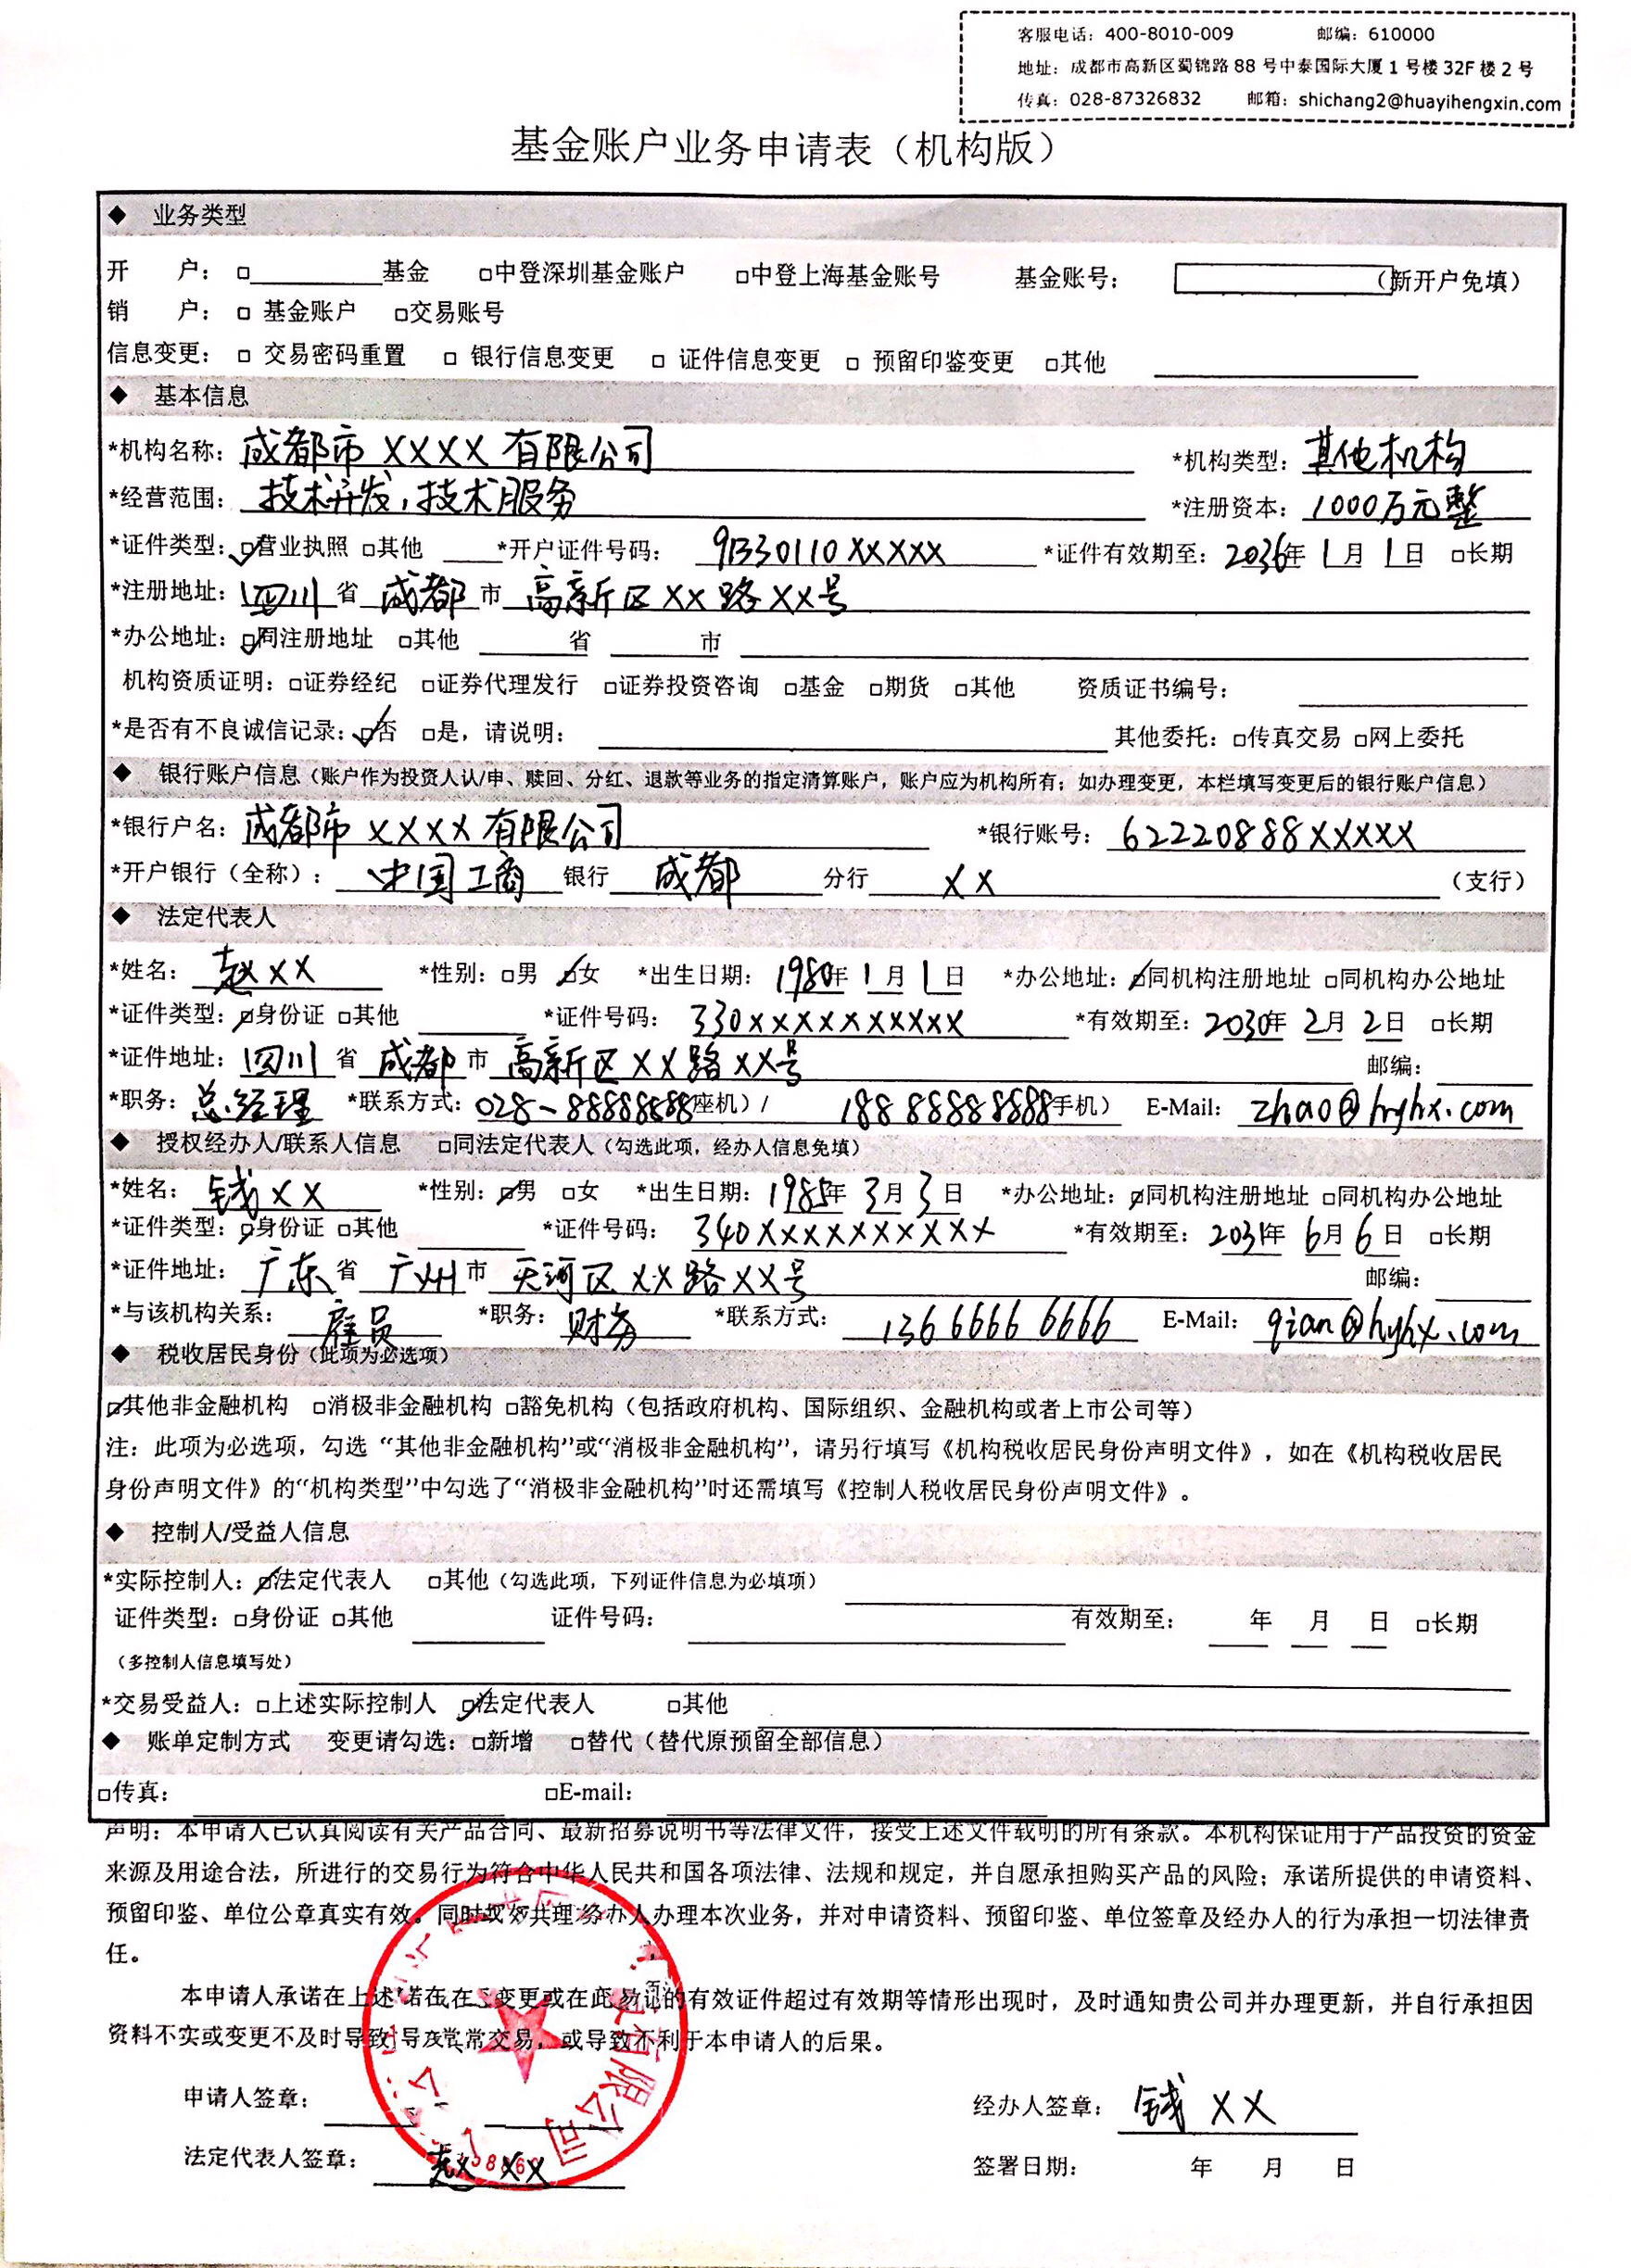 客服电话：400-8010-009 邮编：610000
地址：成都市高新区蜀锦路 88 号中泰国际大厦 1 号楼 32F 楼 2 号
传真：028-87326832 邮箱：shichang2@huayihengxin.com
基金账户业务申请表（机构版）
◆ 业务类型
开 户：□________基金 □中登深圳基金账户 □中登上海基金账号 基金账号： （新开户免填）
销 户：□ 基金账户 □交易账号
信息变更：□ 交易密码重置 □ 银行信息变更 □ 证件信息变更 □ 预留印鉴变更 □其他
◆ 基本信息
*机构名称：成都市XXXX有限公司 *机构类型：其他机构
*经营范围：技术开发，技术服务 *注册资本：1000万元整
*证件类型：☑营业执照 □其他 *开户证件号码：91330110XXXXX *证件有效期至：2036年1月1日 □长期
*注册地址：四川省成都市高新区XX路XX号
*办公地址：☑同注册地址 □其他 省 市
机构资质证明：□证券经纪 □证券代理发行 □证券投资咨询 □基金 □期货 □其他 资质证书编号：
*是否有不良诚信记录：☑否 □是，请说明： 其他委托：□传真交易 □网上委托
◆ 银行账户信息（账户作为投资人认/申、赎回、分红、退款等业务的指定清算账户，账户应为机构所有；如办理变更，本栏填写变更后的银行账户信息）
*银行户名：成都市XXXX有限公司 *银行账号：62220888XXXXX
*开户银行（全称）：中国工商银行成都分行XX（支行）
◆ 法定代表人
*姓名：赵XX *性别：□男 ☑女 *出生日期：1980年1月1日 *办公地址：☑同机构注册地址 □同机构办公地址
*证件类型：☑身份证 □其他 *证件号码：330XXXXXXXXXX *有效期至：2030年2月2日 □长期
*证件地址：四川省成都市高新区XX路XX号 邮编：
*职务：总经理 *联系方式：028-88888888座机）/ 18888888888手机） E-Mail：zhao@hyhx.com
◆ 授权经办人/联系人信息 □同法定代表人（勾选此项，经办人信息免填）
*姓名：钱XX *性别：☑男 □女 *出生日期：1985年3月3日 *办公地址：☑同机构注册地址 □同机构办公地址
*证件类型：☑身份证 □其他 *证件号码：340XXXXXXXXXX *有效期至：2031年6月6日 □长期
*证件地址：广东省广州市天河区XX路XX号 邮编：
*与该机构关系：雇员 *职务：财务 *联系方式：13666666666 E-Mail：qian@hyhx.com
◆ 税收居民身份（此项为必选项）
☑其他非金融机构 □消极非金融机构 □豁免机构（包括政府机构、国际组织、金融机构或者上市公司等）
注：此项为必选项，勾选“其他非金融机构”或“消极非金融机构”，请另行填写《机构税收居民身份声明文件》，如在《机构税收居民
身份声明文件》的“机构类型”中勾选了“消极非金融机构”时还需填写《控制人税收居民身份声明文件》。
◆ 控制人/受益人信息
*实际控制人：☑法定代表人 □其他（勾选此项，下列证件信息为必填项）
证件类型：□身份证 □其他 证件号码： 有效期至： 年 月 日 □长期
（多控制人信息填写处）
*交易受益人：□上述实际控制人 ☑法定代表人 □其他
◆ 账单定制方式 变更请勾选：□新增 □替代（替代原预留全部信息）
□传真： □E-mail：
声明：本申请人已认真阅读有关产品合同、最新招募说明书等法律文件，接受上述文件载明的所有条款。本机构保证用于产品投资的资金
来源及用途合法，所进行的交易行为符合中华人民共和国各项法律、法规和规定，并自愿承担购买产品的风险；承诺所提供的申请资料、
预留印鉴、单位公章真实有效。同时 人办理本次业务，并对申请资料、预留印鉴、单位签章及经办人的行为承担一切法律责
任。
本申请人承诺在上述 变更或在 的有效证件超过有效期等情形出现时，及时通知贵公司并办理更新，并自行承担因
资料不实或变更不及时导致 常交易，或导致不利于本申请人的后果。
有限公司
申请人签章： 经办人签章：钱XX
法定代表人签章：赵XX 签署日期： 年 月 日